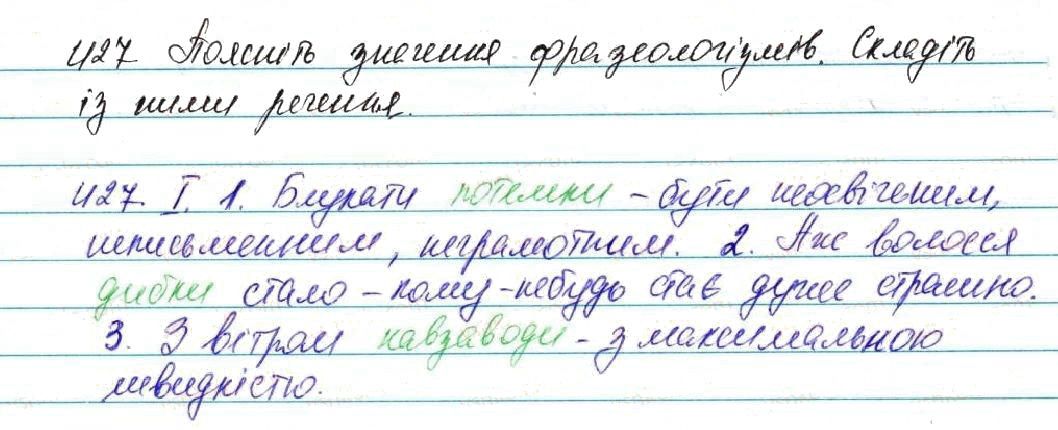 427 Поясніть значення фразеологізмів. Складіть
із ними речення.
427. І. 1. Блукати потемки – бути неосвіченим,
неписьменним, неграмотним. 2. Аж волосся
дибки стало – кому-небудь стає дуже страшно.
3. З вітром навзаводи – з максимальною
швидкістю.